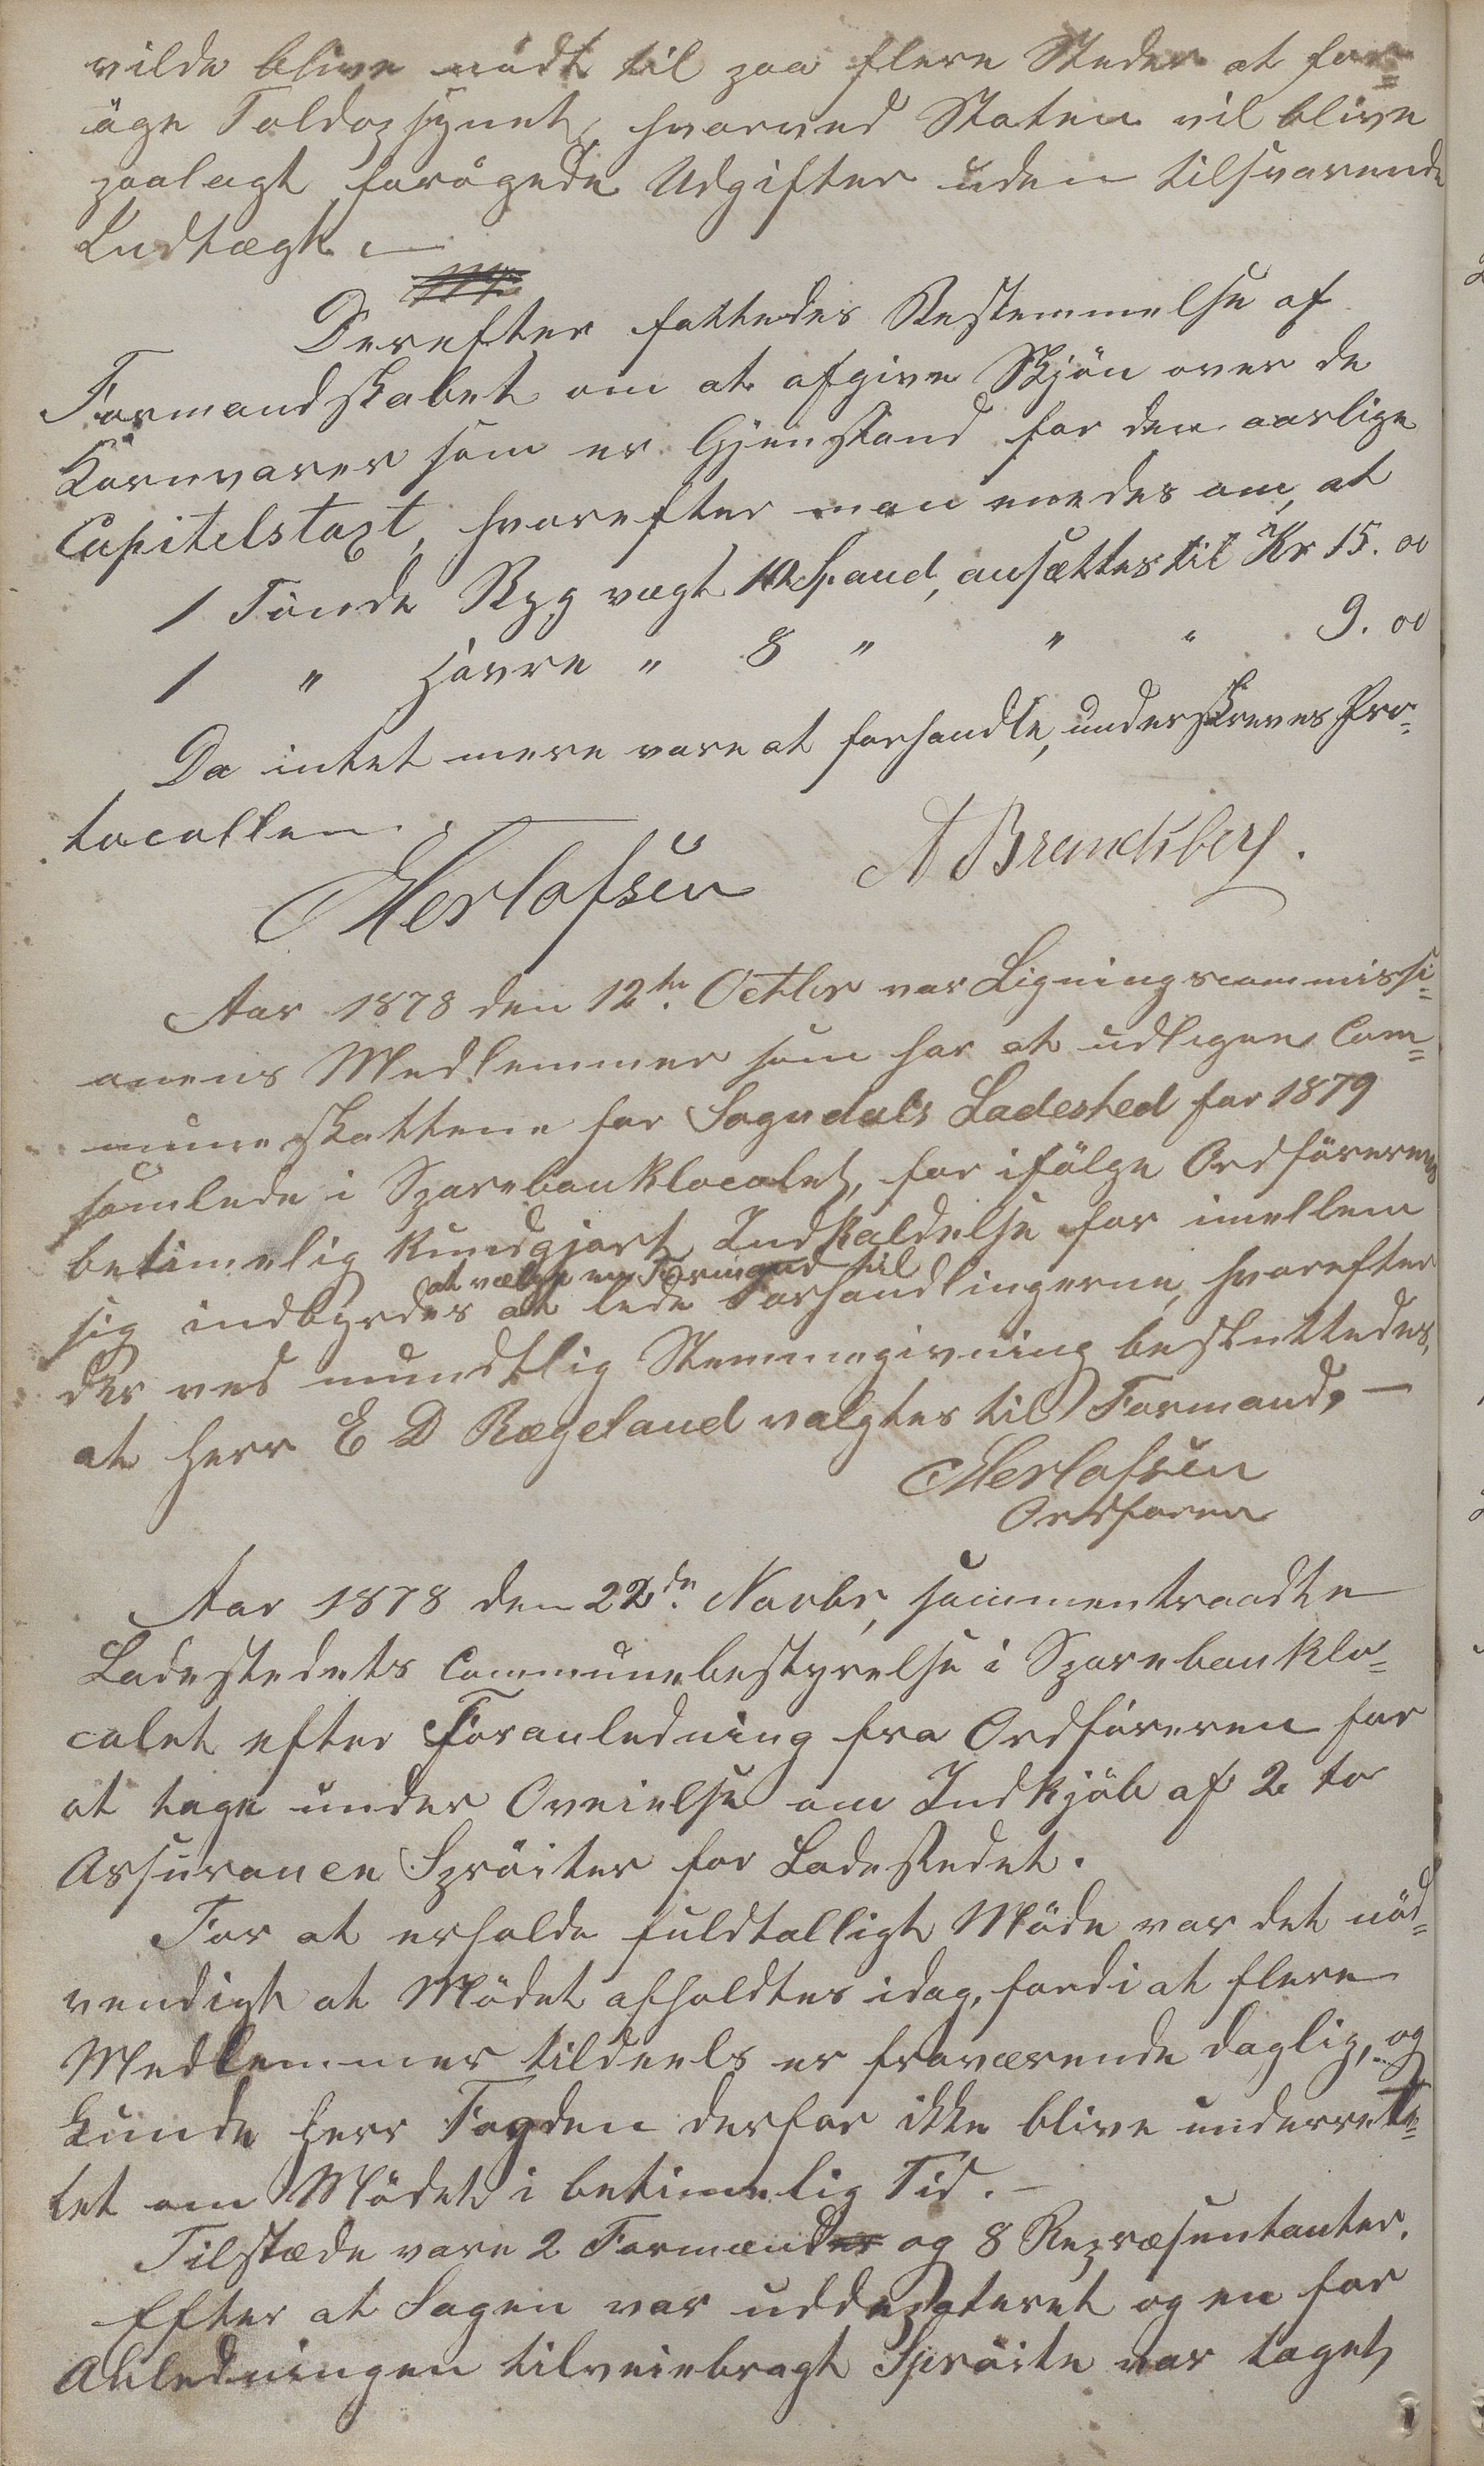 vilde blive nødt til paa flere Steder at for=
øge Toldopsynet, hvorved Staten vil blive
paalagt forøgede Udgifter uden tilsvarende
Indtægt. —
Derefter fattedes Bestemmelse af
Formandskabet om at afgive Skjøn over de
Kornvarer som er Gjenstand for den aarlige
Capitelstaxt, hvorefter man enedes om, at
1 Tønde Byg vægt 10 Spand, ansættes til Kr 15. 00
1 " Havre " 8 " " " 9. 00
Da intet mere vare at forhandle, underskreves Pro=
tocollen.
Herlofsen A Brandsberg.
Aar 1878 den 12te Octbr var Ligningscommissi=
onens Medlemmer som har at udligne Com=
muneskattene for Sogndals Ladested for 1879
samlede i Sparebanklocalet, for ifølge Ordførerens
betimelig kundgjort Indkaldelse for imellem
at vælge en Formand til
sig indbyrdes at lede Forhandlingerne, hvorefter
der ved mundtlig Stemmegivning besluttedes,
at Herr E D Rægeland valgtes til Formand. —
Herlofsen
Ordforer
Aar 1878 den 22de Novbr, sammentraadte
Ladestedets Communebestyrelse i Sparebanklo=
calet efter Foranledning fra Ordføreren for
at tage under Oveielse om Indkjøb af 2 to
Assurance Sprøiter for Ladestedet.
For at erholde fuldtalligt Møde var det nød=
vendigt at Mødet afholdtes idag, fordi at flere
Medlemmer tildeels er fraværende daglig, og
kunde Herr Fogden derfor ikke blive underret=
tet om Mødet i betimelig Tid. —
Tilstæde vare 2 Formænd og 8 Repræsentanter.
Efter at Sagen var uddebateret og en for
Anledningen tilveiebragt Sprøite var taget